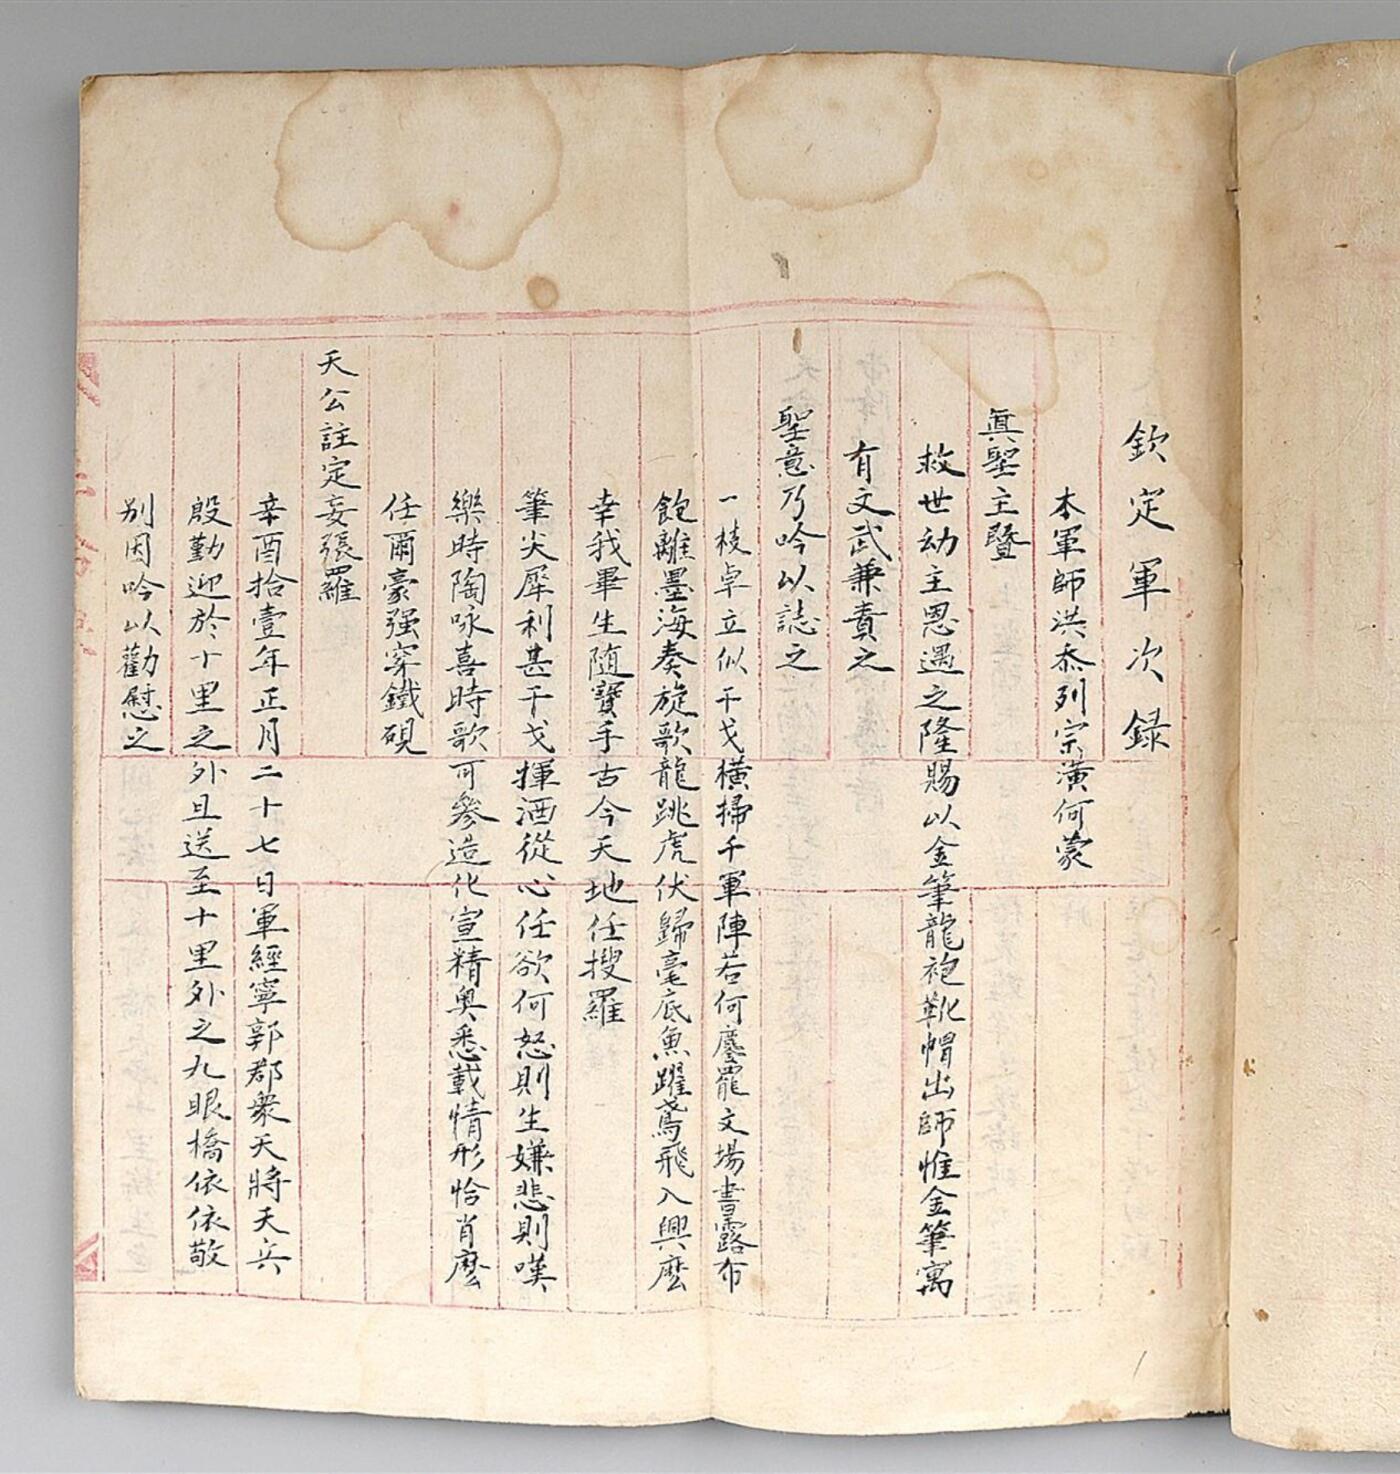 欽定軍次錄
本軍師洪忝列宗潢何蒙
眞聖主暨
救世幼主恩遇之隆賜以金筆龍袍靴帽出師惟金筆寓
有文武兼責之
聖意乃吟以誌之
一枝卓立似干戈橫掃千軍陣若何鏖罷文場書露布
飽離墨海奏旋歌龍跳虎伏歸毫底魚躍鳶飛入興麽
幸我畢生随寶手古今天地任搜羅
筆尖犀利甚干戈揮洒從心任欲何怒則生嫌悲則嘆
樂時陶咏喜時歌可參造化宣精奥悉載情形恰肖麽
任爾豪强穿鐵硯
天公註定妄張羅
辛酉拾壹年正月二十七日軍經寧郭郡衆天將天兵
殷勤迎於十里之外且送至十里外之九眼橋依依敬
别因吟以勸慰之